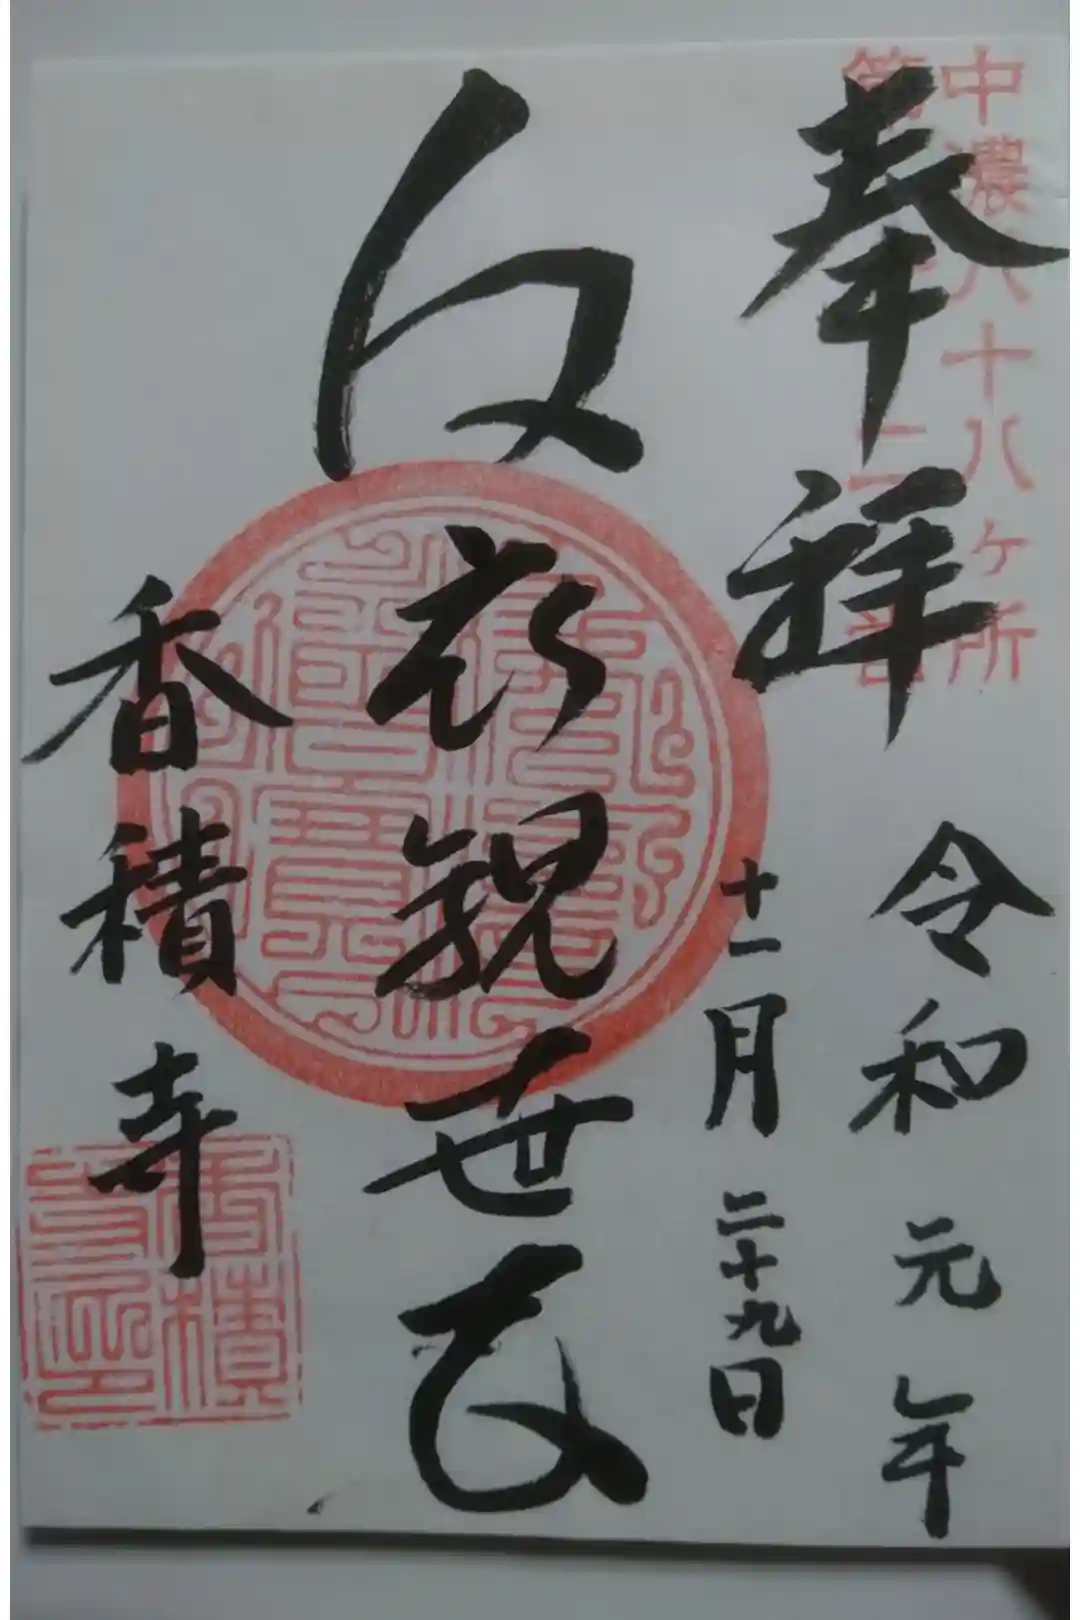 中濃八十八ヶ所
奉拝
令和元年
十一月二十九日
白衣観世音
香積寺
香積寺印